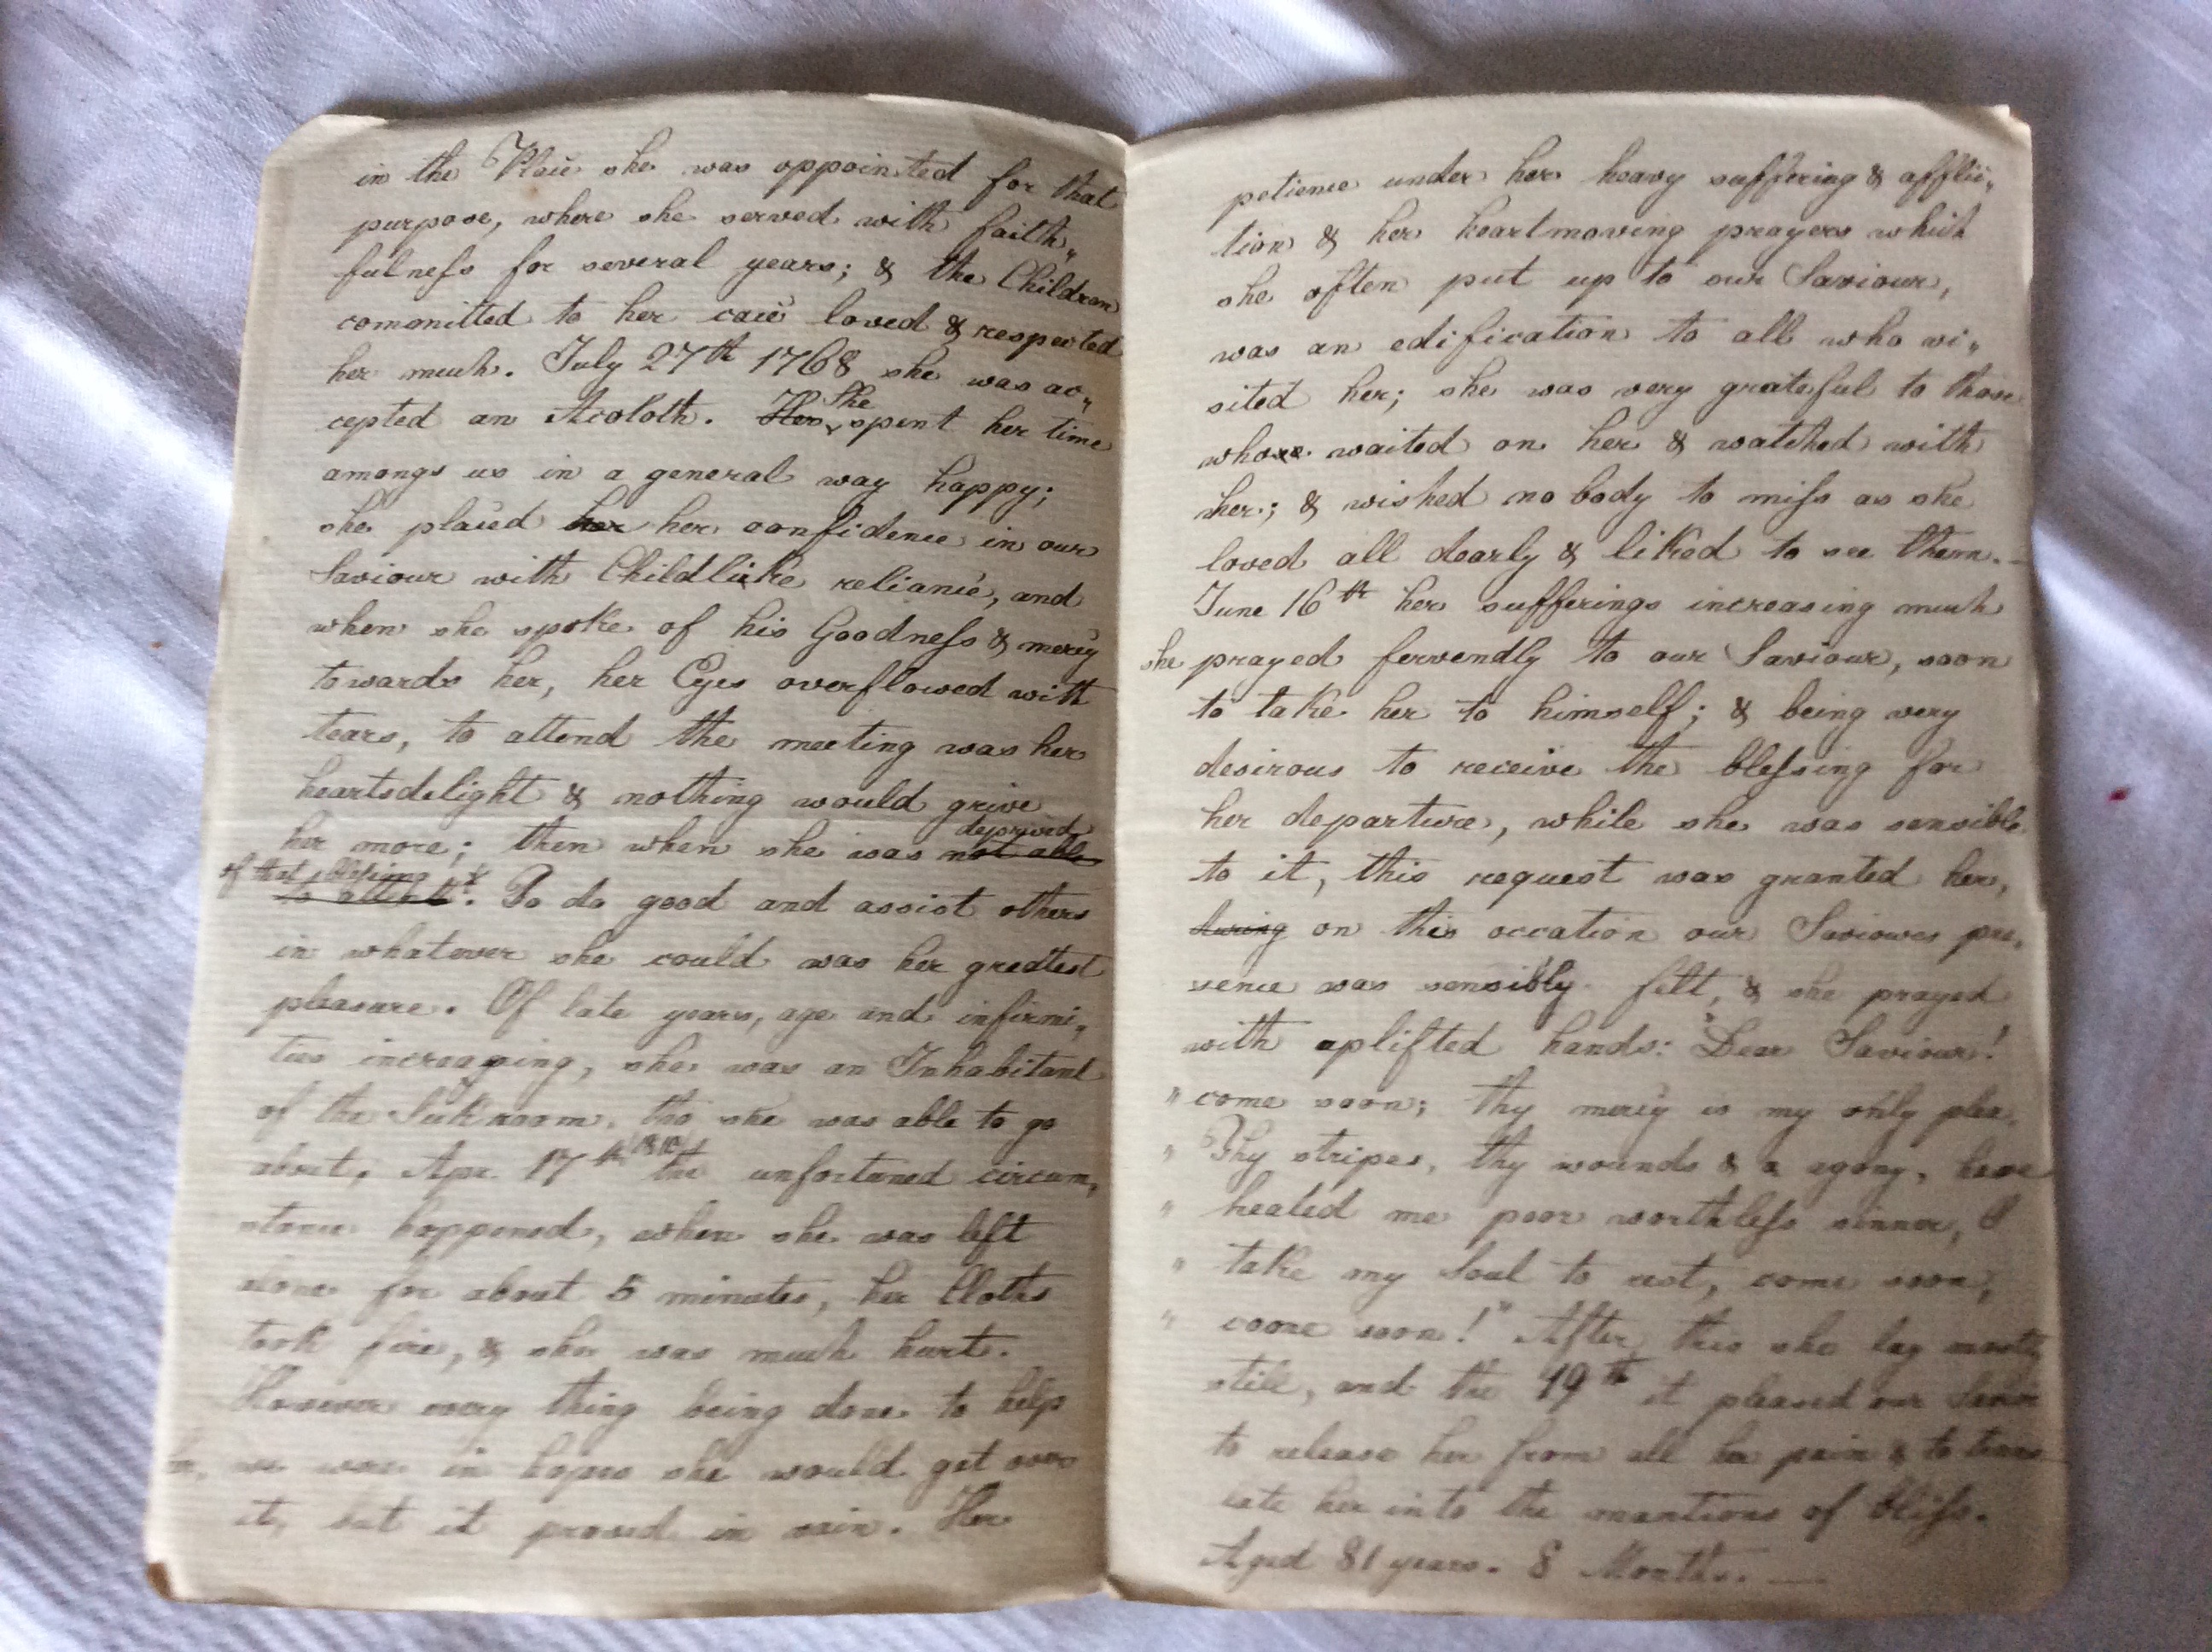 in the Place she was appointed for that
purpose, where she served with faith„
fulneſs for several years; & the Children
committed to her care loved & respected
her much. July 27th 1768 she was ac„
cepted an Acoloth. Her She spent her time
amongs us in a general way happy;
she placed her her confidence in our
Saviour with Childlike reliance, and
when she spoke of his Goodneſs & mercy
towards her, her Eyes overflowed with
tears, to attend the meeting was her
heartsdelight & nothing would grive
her more; then when she was not able deprived
of that bleſsing to attend it. To do good and assist others
in whatever she could was her greatest
pleasure. Of late years, age and infirmi„
ties increasing, she was an Inhabitant
of the Sickroom, tho she was able to go
about, Apr. 17th 1810 the unfortuned circum„
stance happened, when she was left
alone for about 5 minutes, her Cloths
took fire, & she was much hurt.
However every thing being done to help
her, we were in hopes she would get over
it, but it proved in vain. Her
patience under her heavy suffering & afflic„
tion & her heartmoving prayers which
she often put up to our Saviour,
was an edification to all who vi„
sited her; she was very grateful to those
who waited on her & watched with
her; & wished no body to miſs as she
loved all dearly & liked to see them. –
June 16th her sufferings increasing much
she prayed fervendly to our Saviour, soon
to take her to himself; & being very
desirous to receive the bleſsing for
her departure, while she was sensible
to it, this request was granted her,
during on this occation our Saviours pre„
sence was sensibly felt, & she prayed
with uplifted hands: "Dear Saviour!
" come soon; thy mercy is my only plea.
" Thy stripes, thy wounds & agony, have
" healed me poor worthleſs sinner, O
" take my Soul to rest, come soon,
" come soon!" After this she lay mostly
still, and the 19th it pleased our Savior
to release her from all her pain & to trans
late her into the mantions of bliſs.
Aged 81 years. 8 Months. —